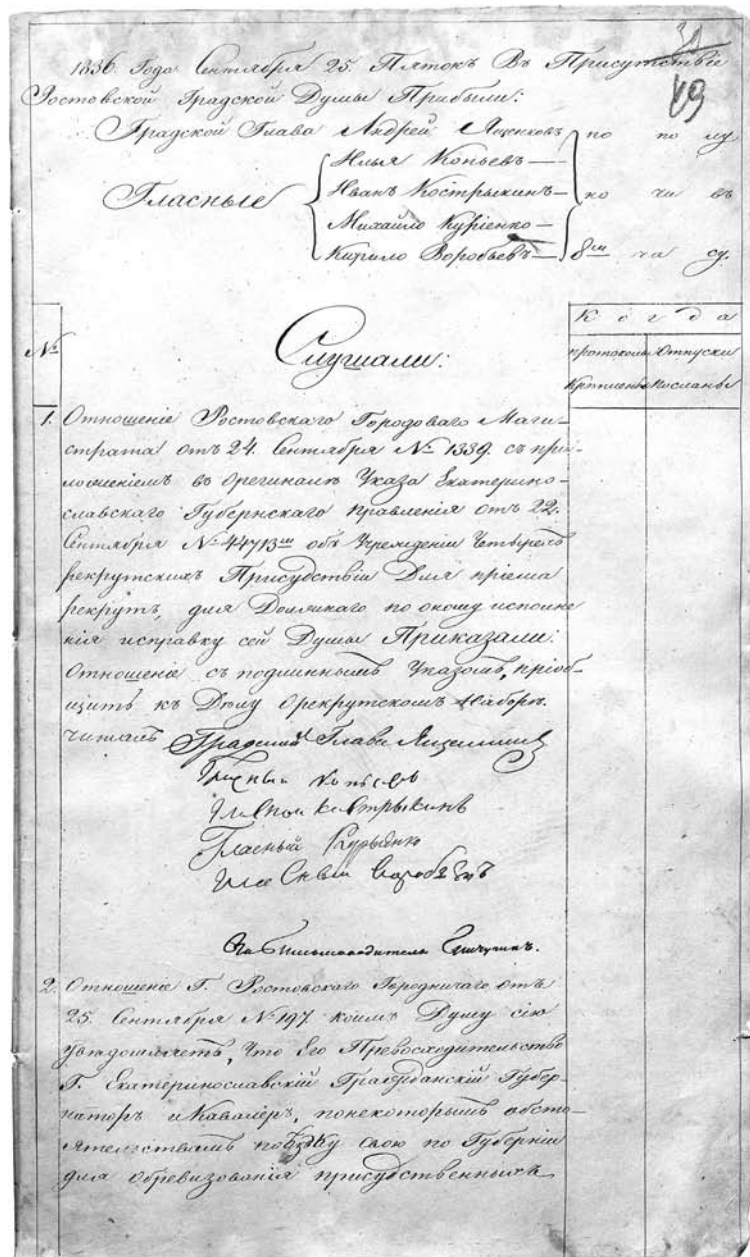 1836. Года Сентября 25. Пятокъ Въ Присутствіе
Ростовской Градской Думы Прибыли:
49
Градской Глава Андрей Ященковъ по по лу
Илья Копьевъ —
Гласные Иванъ Кострыкинъ — но чи въ
Михайло Куріенко —
Кирило Воробьевъ — 8мъ ча су.
Когда
№
Слушали:
протоколы Отпуски
Крѣплены Посланы
1. Отношеніе Ростовскаго Городоваго Маги-
страта отъ 24. Сентября № 1339. съ при-
ложеніемъ въ орегиналѣ Указа Екатерино-
славскаго Губернскаго правленія отъ 22.
Сентября № 44713м объ Учрежденіи Четырехъ
рекрутскихъ Присудствій Для пріема
рекрутъ, для Должнаго по оному исполне
нія исправку сей Думы Приказали:
Отношеніе съ подлиннымъ Указомъ, пріоб-
щить къ Дѣлу Орекрутскомъ Наборѣ.
читалъ Градской Глава
Гласный Копьевъ
Гласной Кострыкинъ
Гласный Курыенко
Гласный Воробьевъ
За Письмоводителя
2. Отношеніе Г. Ростовскаго Городничаго отъ
25. Сентября № 197. коимъ Думу сію
Увѣдомляетъ, Что Его Превосходительство
Г. Екатеринославскій Гражданскій Губер-
наторъ и Кавалеръ, понекоторымъ обсто-
ятельствамъ поѣздку свою по Губерніи
для Обревизованія присудственныхъ